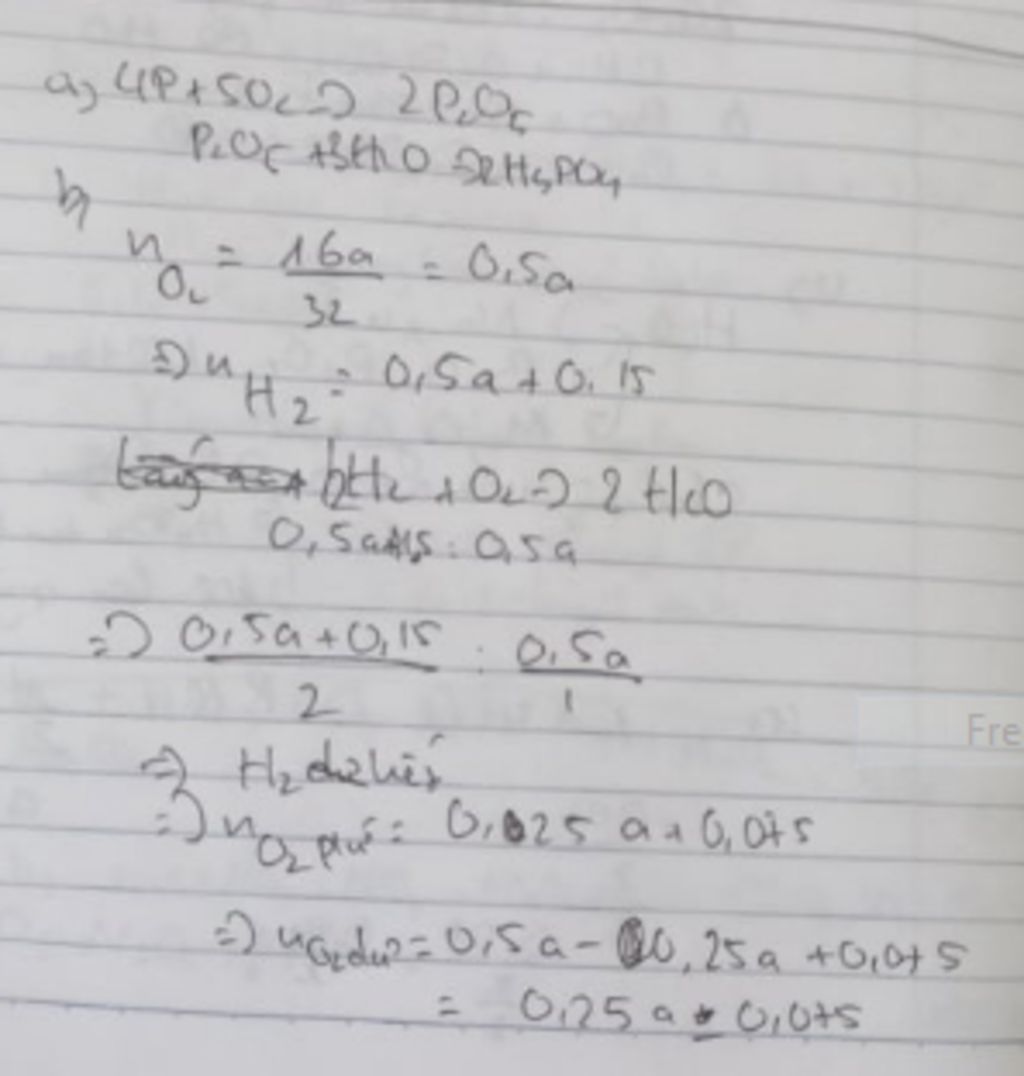 a, 4P + 5O2 => 2P2O5
P2O5 + 3H2O => 2H3PO4
b,
nO2 = 16a/32 = 0,5a
=> nH2 = 0,5a + 0,15
2H2 + O2 => 2H2O
0,5a+1,5 : 0,5a
=> 0,5a + 0,15/2 : 0,5a/1
=> H2
=> nO2 pứ = 0,25 a + 0,075
=> nO2 dư = 0,5a - 0,25a + 0,075
= 0,25 a - 0,075
Fre